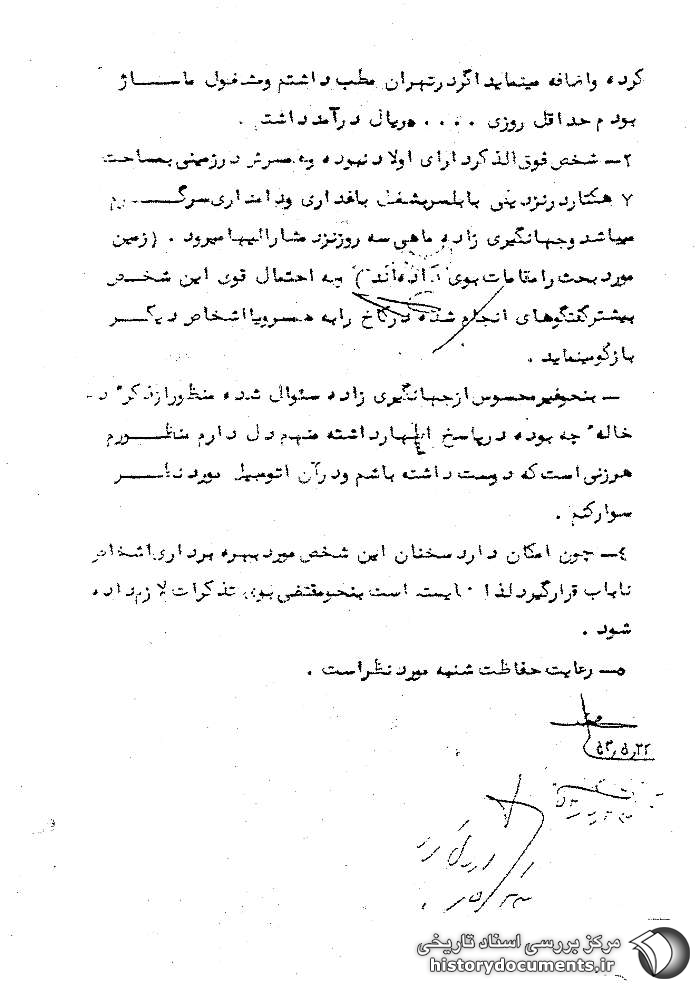 کرده واضافه مینماید اگردرتهران مطب داشتم ومشغول ماساژ
بودم حداقل روزی ۰۰۰۰ ریال درآمد داشتم .
۲ــ شخص فوق‌الذکردارای اولاد نبوده وهمسرش درزمینی بمساحت
۷ هکتاردر بشغل باغداری ودامداری سرگرم
میباشد وجهانگیری زاده ماهی سه روزنزد مشارالیها میرود . (زمین
مورد بحث رامقامات بوی داده‌اند ) به احتمال قوی این شخص
بیشترگفتگوهای انجام شده درکاخ رابه همسرویا اشخاص دیگر
بازگو مینماید .
ــ بنحوغیرمحسوس ازجهانگیری زاده سئوال شده منظورازذکر"
خاله" چه بوده درپاسخ اظهارداشته منهم دل دارم منظورم
هرزنی است که دوست داشته باشم ودرآن اتومبیل مورد نظر
سوارکنم .
۴ــ چون امکان دارد سخنان این شخص مورد بهره برداری اشخاص
ناباب قرارگیرد لذا است بنحومقتضی بوی تذکرات لازم داده
شود .
۵ــ رعایت حفاظت شنبه مورد نظراست .
۵۳٫۵٫۲۲
مرکز بررسی اسناد تاریخی
historydocuments.ir